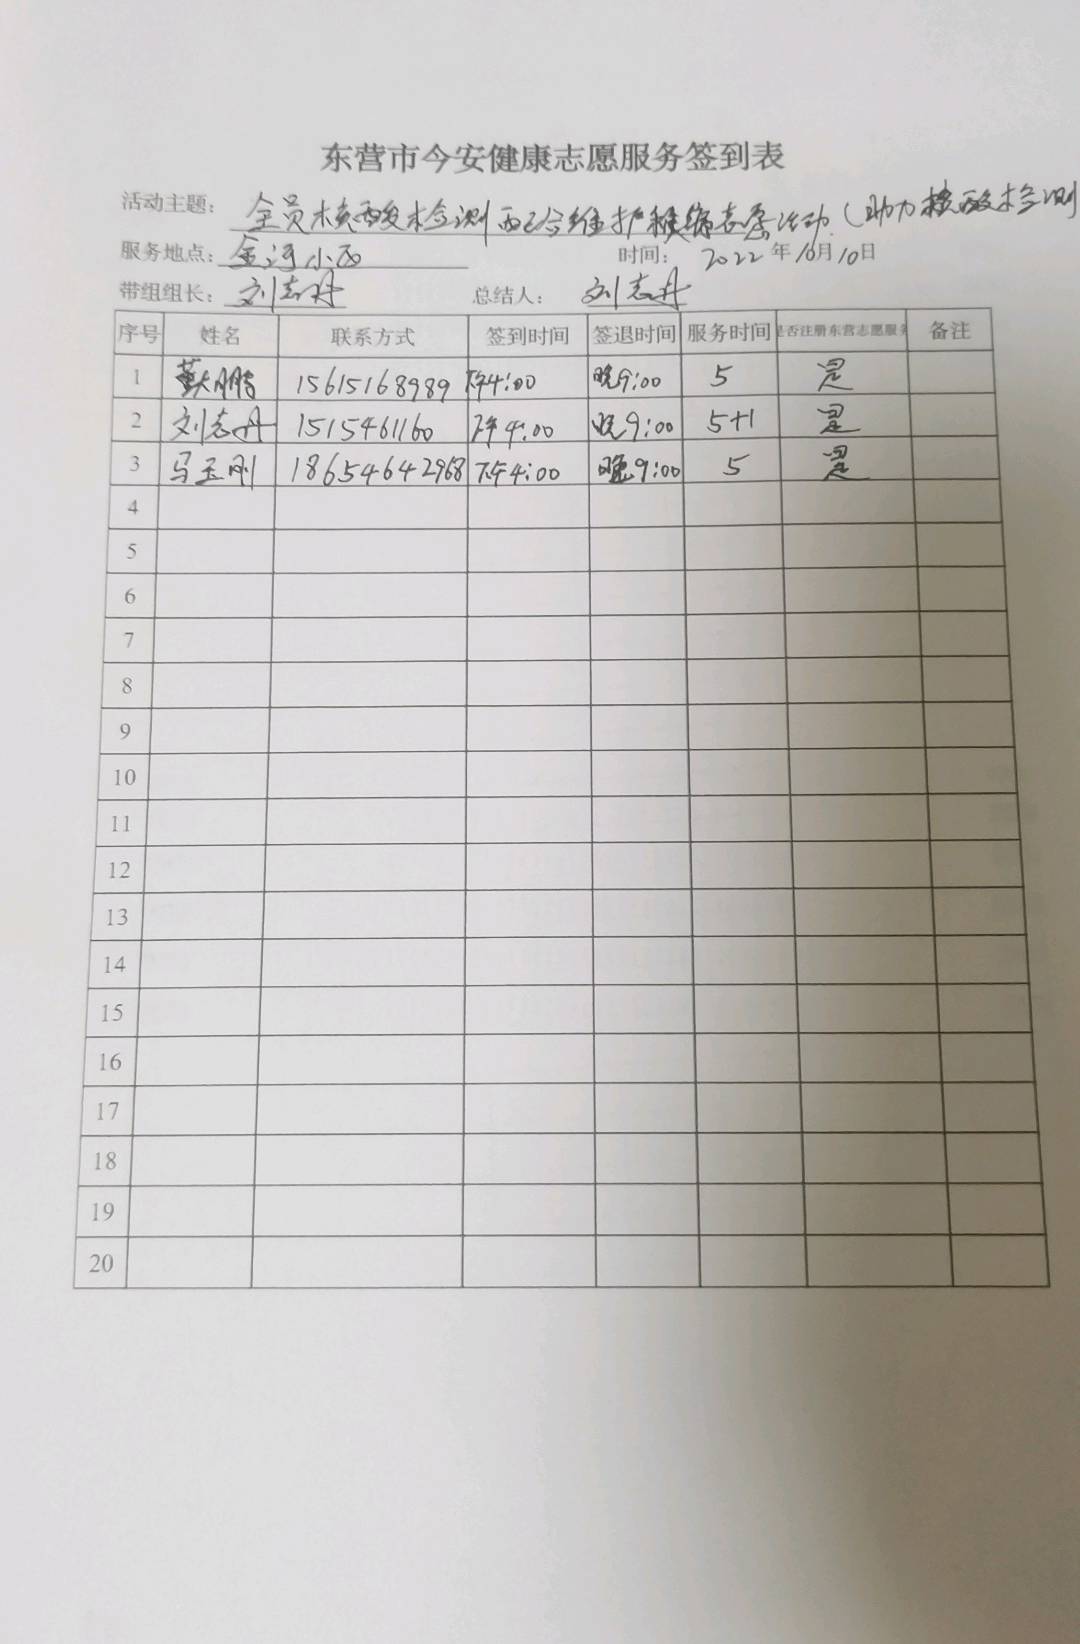 东营市今安健康志愿服务签到表
活动主题: 全员核酸检测配合维护秩序志愿活动(助力核酸检测
服务地点: 金河小区 时间: 2022年10月10日
带组组长: 刘志丹 总结人: 刘志丹
序号 姓名 联系方式 签到时间 签退时间 服务时间 是否注册东营志愿服务 备注
1 鹏 15615168989 下午4:00 晚9:00 5 是
2 刘志丹 1515461160 下午4:00 晚9:00 5+1 是
3 马玉刚 18654642968 下午4:00 晚9:00 5 是
4
5
6
7
8
9
10
11
12
13
14
15
16
17
18
19
20